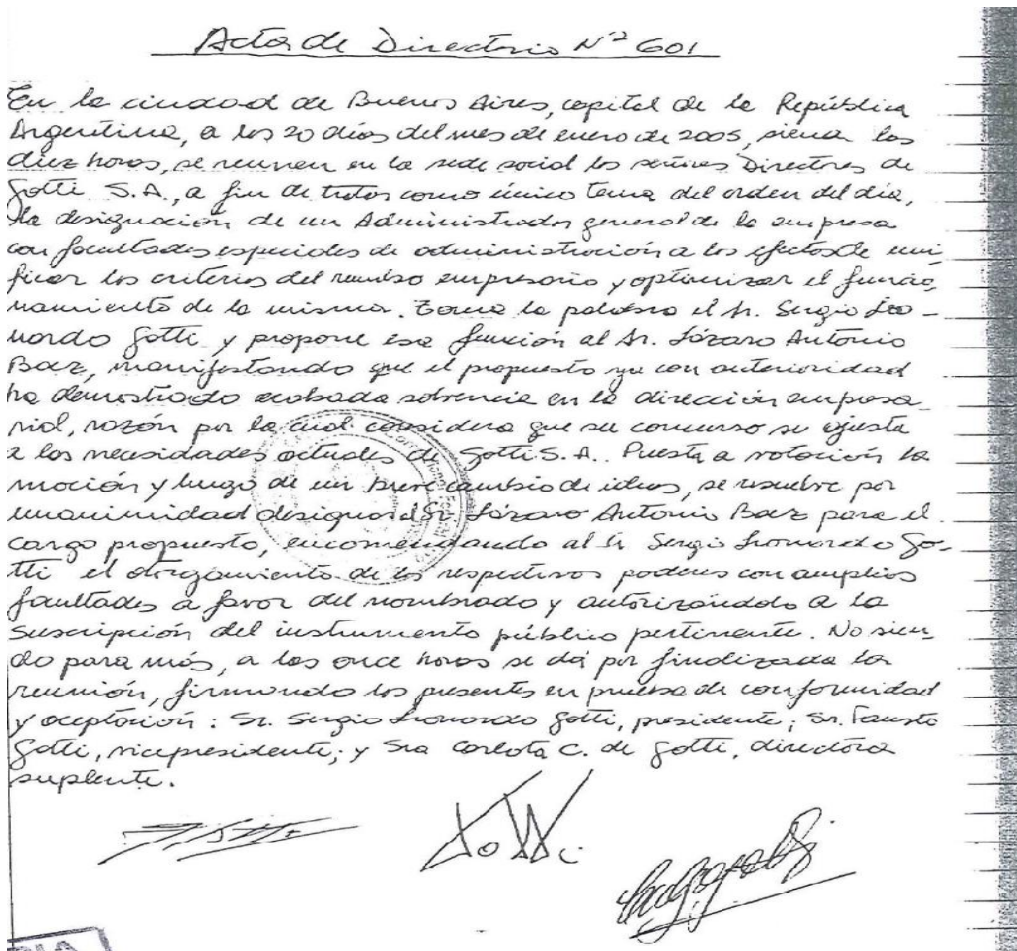 Acta de Directorio Nº 601
En la ciudad de Buenos Aires, capital de la República
Argentina, a los 20 días del mes de enero de 2005, siendo las
diez horas, se reunen en la sede social los señores Directores de
Gotti S.A., a fin de tratar como único tema del orden del día,
la designación de un Administrador general de la empresa
con facultades especiales de administración a los efectos de uni-
ficar los criterios del rumbo empresario y optimizar el funcio-
namiento de la misma. Toma la palabra el Sr. Sergio Leo-
nardo Gotti y propone esa función al Sr. Lázaro Antonio
Baez, manifestando que el propuesto ya con anterioridad
ha demostrado acabada solvencia en la dirección empresa-
rial, razón por la cual considera que su concurso se ajusta
a las necesidades actuales de Gotti S.A.. Puesta a votación la
moción y luego de un breve cambio de ideas, se resuelve por
unanimidad designar al Sr. Lázaro Antonio Baez para el
cargo propuesto, encomendando al Sr Sergio Leonardo Go-
tti el otorgamiento de los respectivos poderes con amplias
facultades a favor del nombrado y autorizándolo a la
suscripción del instrumento público pertinente. No sien-
do para más, a las once horas se da por finalizada la
reunión, firmando los presentes en prueba de conformidad
y aceptación: Sr. Sergio Leonardo Gotti, presidente; Sr. Fausto
Gotti, vicepresidente; y Sra Carlota C. de Gotti, directora
suplente.